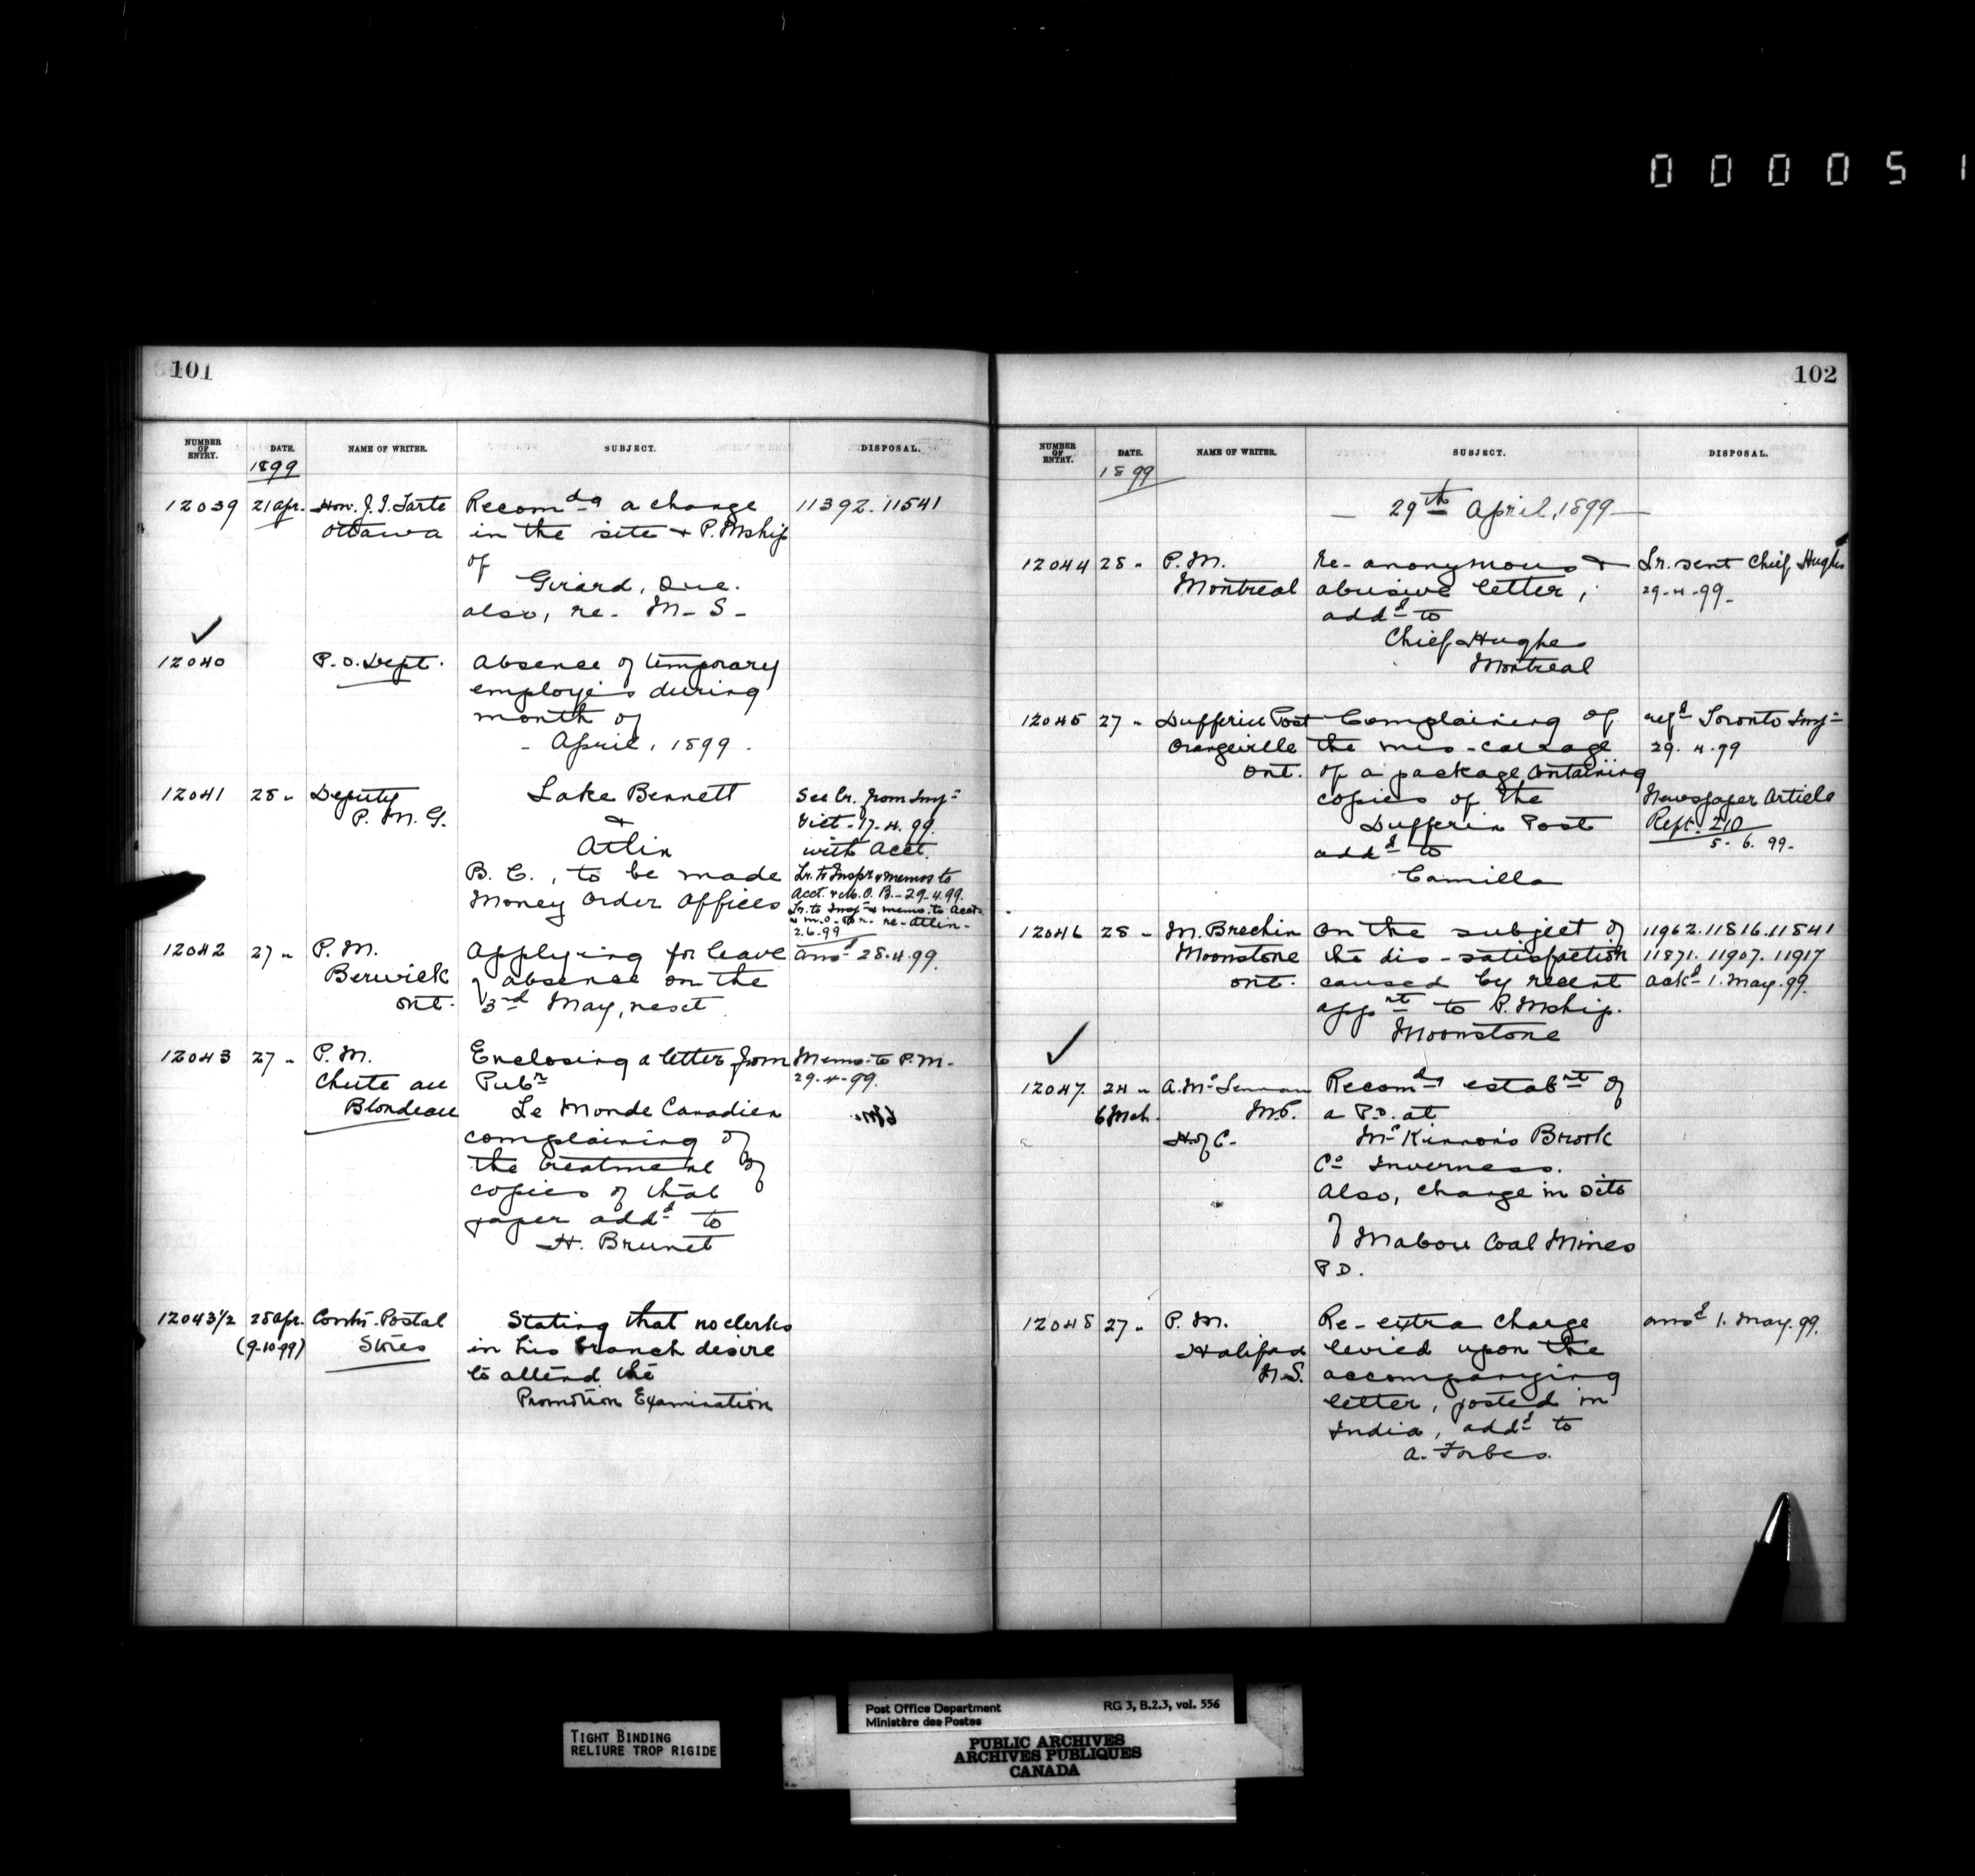 000051
101
NUMBER OF ENTRY. DATE. NAME OF WRITER. SUBJECT. DISPOSAL.
1899
12039 21 Apr. Hon. J. I. Tarte Recomdg a change 11392. 11541
Ottawa in the site + P. Mship
of
Girard, Que.
also, re. M-S-
12040 P.O. Dept. Absence of temporary
employés during
month of
- April, 1899.
12041 28 " Deputy Lake Bennett See lr. from Insp
P. M. G. + Vict-17.4.99
Atlin with Acct.
B. C., to be made Lr. to Inspr + memos to
Money Order Offices Acct. + M.O.B.-29.4.99.
Lr. to Insp + memo. to Acct.
re-Atlin-
2.6.99
12042 27 " P. M. Applying for leave ansd 28.4.99.
Berwick of absence on the
Ont. 3rd May, next
12043 27 " P. M. Enclosing a letter from Memo-to P.M-
Chute au Pubr 29-4-99.
Blondeau Le Monde Canadien
complaining of
the treatment of
copies of that
paper addd to
H. Brunet
12043 1/2 28 Apr. Contr. Postal Stating that no clerks
(9-10 99) Stores in his branch desire
to attend the
Promotion Examination
102
NUMBER OF ENTRY. DATE. NAME OF WRITER. SUBJECT. DISPOSAL.
1899
- 29th April, 1899 -
12044 28 - P. M. Re-anonymous + Lr. sent Chief Hughes
Montreal abusive letter, 29-4-99-
addd to
Chief Hughes
Montreal
12045 27 " Dufferin Post Complaining of refd Toronto Insp
Orangeville the mis-carriage 29.4.99
Ont. of a package containing
copies of the Newspaper Article
Dufferin Post Rept. 210
addd to 5-6.99-
Camilla
12046 28 - M. Brechin On the subject of 11962.11816.11841
Moonstone the dis-satisfaction 11871. 11907. 11917
Ont. caused by recent ackd 1. May. 99.
appnt to P. Mship.
Moonstone
12047. 24 " A. McLennan Recomdg estabnt of
6 Mch. M.P. a P.O. at
H. of C. McKinnon's Brook
Co Inverness.
Also, change in site
of Mabou Coal Mines
P.O.
12048 27 " P. M. Re-extra charge ansd 1. May. 99.
Halifax levied upon the
N.S. accompanying
letter, posted in
India, addd to
A. Forbes.
TIGHT BINDING
RELIURE TROP RIGIDE
Post Office Department RG 3, B.2.3, vol. 556
Ministère des Postes
PUBLIC ARCHIVES
ARCHIVES PUBLIQUES
CANADA